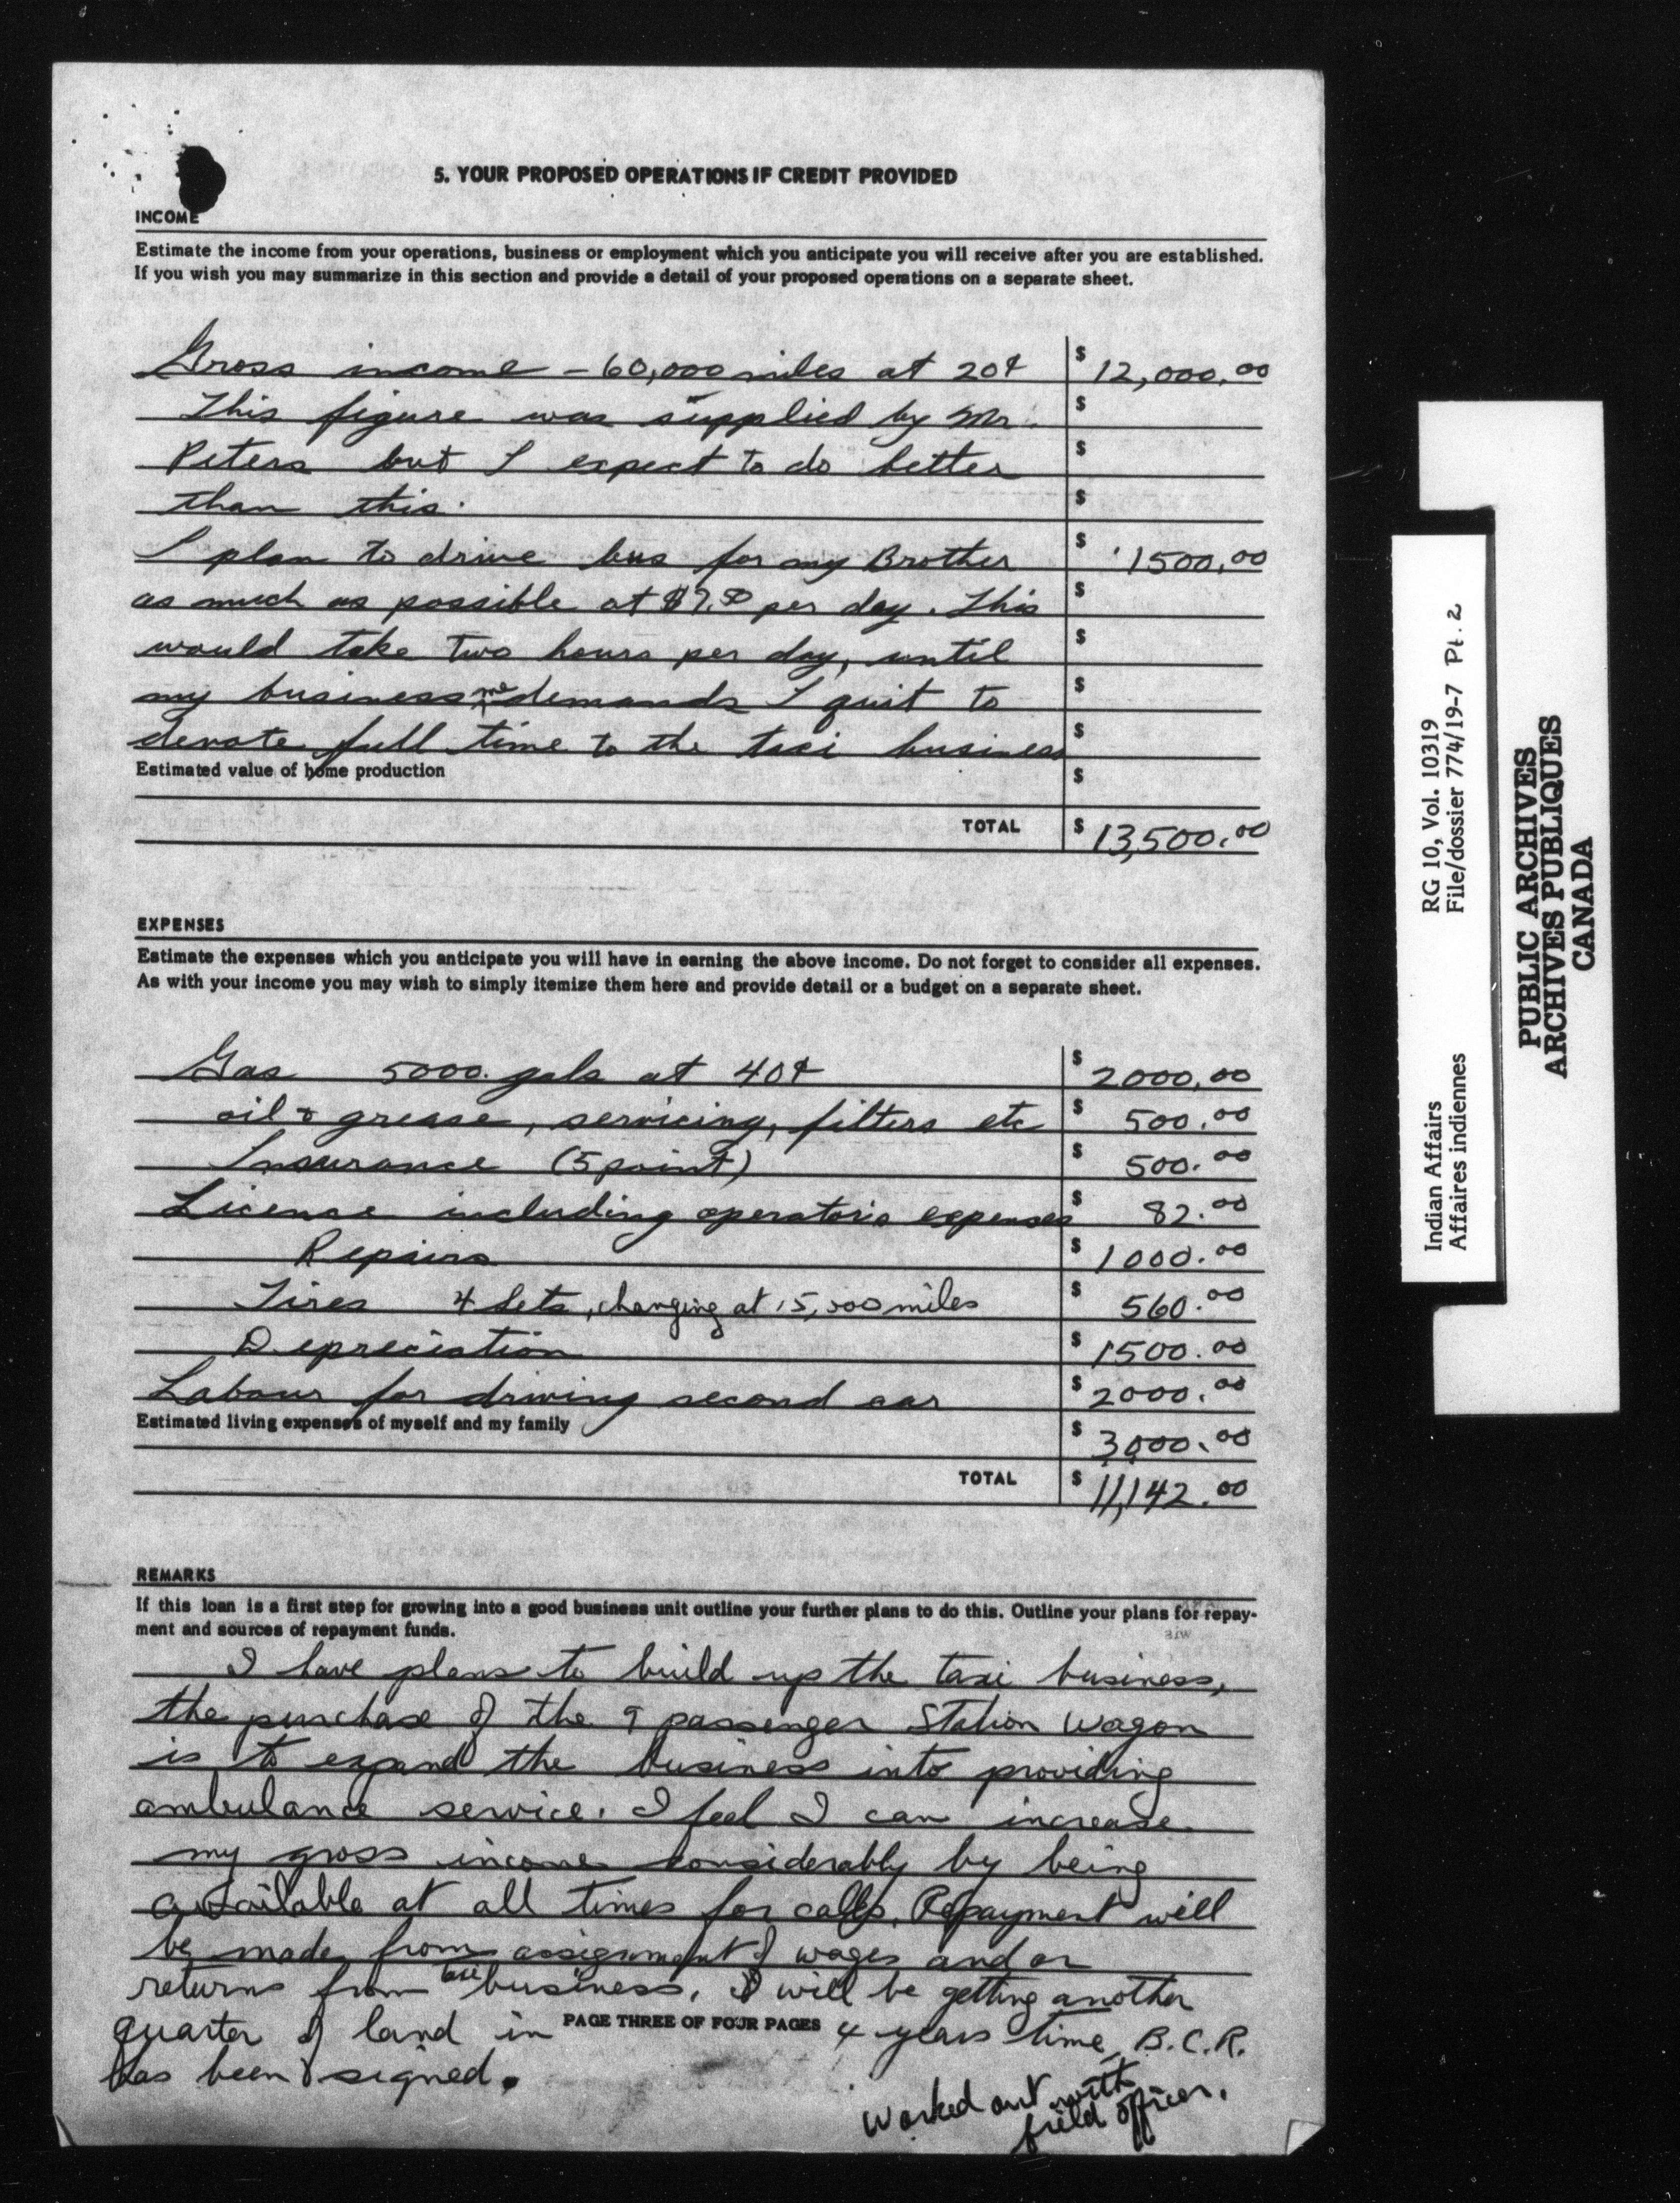 5. YOUR PROPOSED OPERATIONS IF CREDIT PROVIDED
INCOME
Estimate the income from your operations, business or employment which you anticipate you will receive after you are established.
If you wish you may summarize in this section and provide a detail of your proposed operations on a separate sheet.
Gross income - 60,000 miles at 20¢ $ 12,000.00
This figure was supplied by Mr. $
Peters but I expect to do better $
than this. $
I plan to drive bus for my Brother $ 1500.00
as much as possible at $7.50 per day. This $
would take two hours per day, until $
my business me demands I quit to $
devote full time to the taxi business $
Estimated value of home production $
TOTAL $ 13,500.00
EXPENSES
Estimate the expenses which you anticipate you will have in earning the above income. Do not forget to consider all expenses.
As with your income you may wish to simply itemize them here and provide detail or a budget on a separate sheet.
Gas 5000 gals at 40¢ $ 2000.00
oil & grease, servicing, filters etc $ 500.00
Insurance (5 point) $ 500.00
License including operators expenses $ 82.00
Repairs $ 1000.00
Tires 4 Sets, changing at 15,000 miles $ 560.00
Depreciation $ 1500.00
Labour for driving second car $ 2000.00
Estimated living expenses of myself and my family $ 3000.00
TOTAL $ 11,142.00
REMARKS
If this loan is a first step for growing into a good business unit outline your further plans to do this. Outline your plans for repay-
ment and sources of repayment funds.
I have plans to build up the taxi business,
the purchase of the 9 passenger Station Wagon
is to expand the business into providing
ambulance service. I feel I can increase
my gross income considerably by being
available at all times for calls. Repayment will
be made from assignment of wages and or
returns from bus business. I will be getting another
quarter of land in 4 years time, B.C.R.
PAGE THREE OF FOUR PAGES
has been signed.
Worked out with
field officer.
Indian Affairs RG 10, Vol. 10319
Affaires indiennes File/dossier 774/19-7 Pt. 2
PUBLIC ARCHIVES
ARCHIVES PUBLIQUES
CANADA